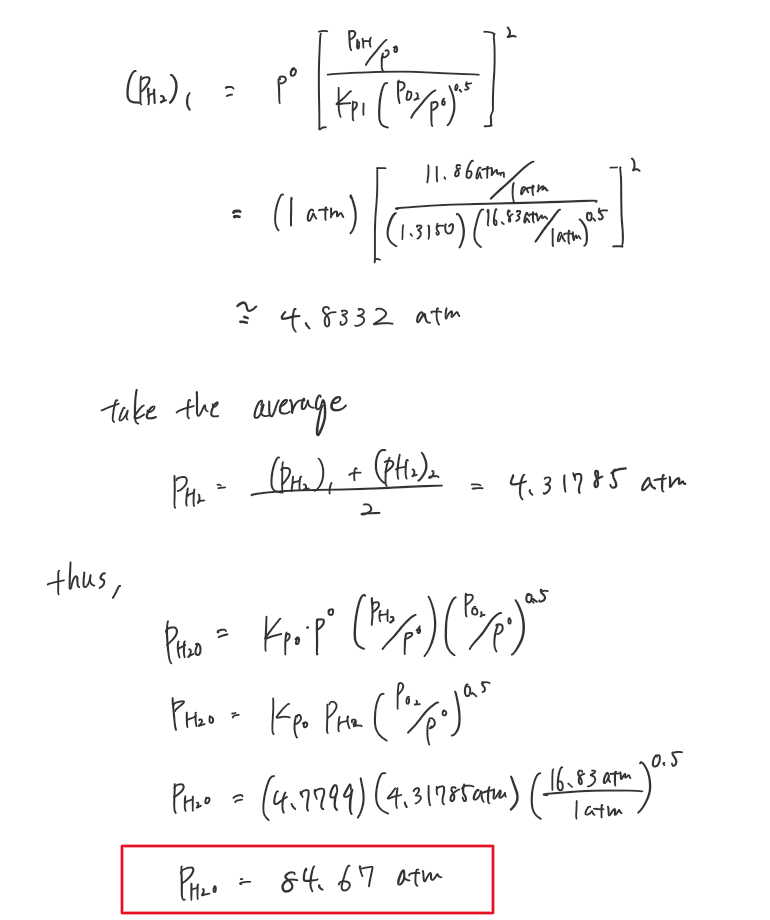 (P_H₂)₁ = P⁰ [ (P_OH/P⁰) / (K_P1 (P_O₂/P⁰)^0.5) ]²
= (1 atm) [ (11.86atm/1atm) / ((1.3150) (16.83atm/1atm)^0.5) ]²
≅ 4.8332 atm
take the average
P_H₂ = ((P_H₂)₁ + (PH₂)₂) / 2 = 4.31785 atm
thus,
P_H₂O = K_P0 · P⁰ (P_H₂/P⁰) (P_O₂/P⁰)^0.5
P_H₂O = K_P0 P_H₂ (P_O₂/P⁰)^0.5
P_H₂O = (4.7799) (4.31785atm) (16.83 atm / 1 atm)^0.5
P_H₂O = 84.67 atm